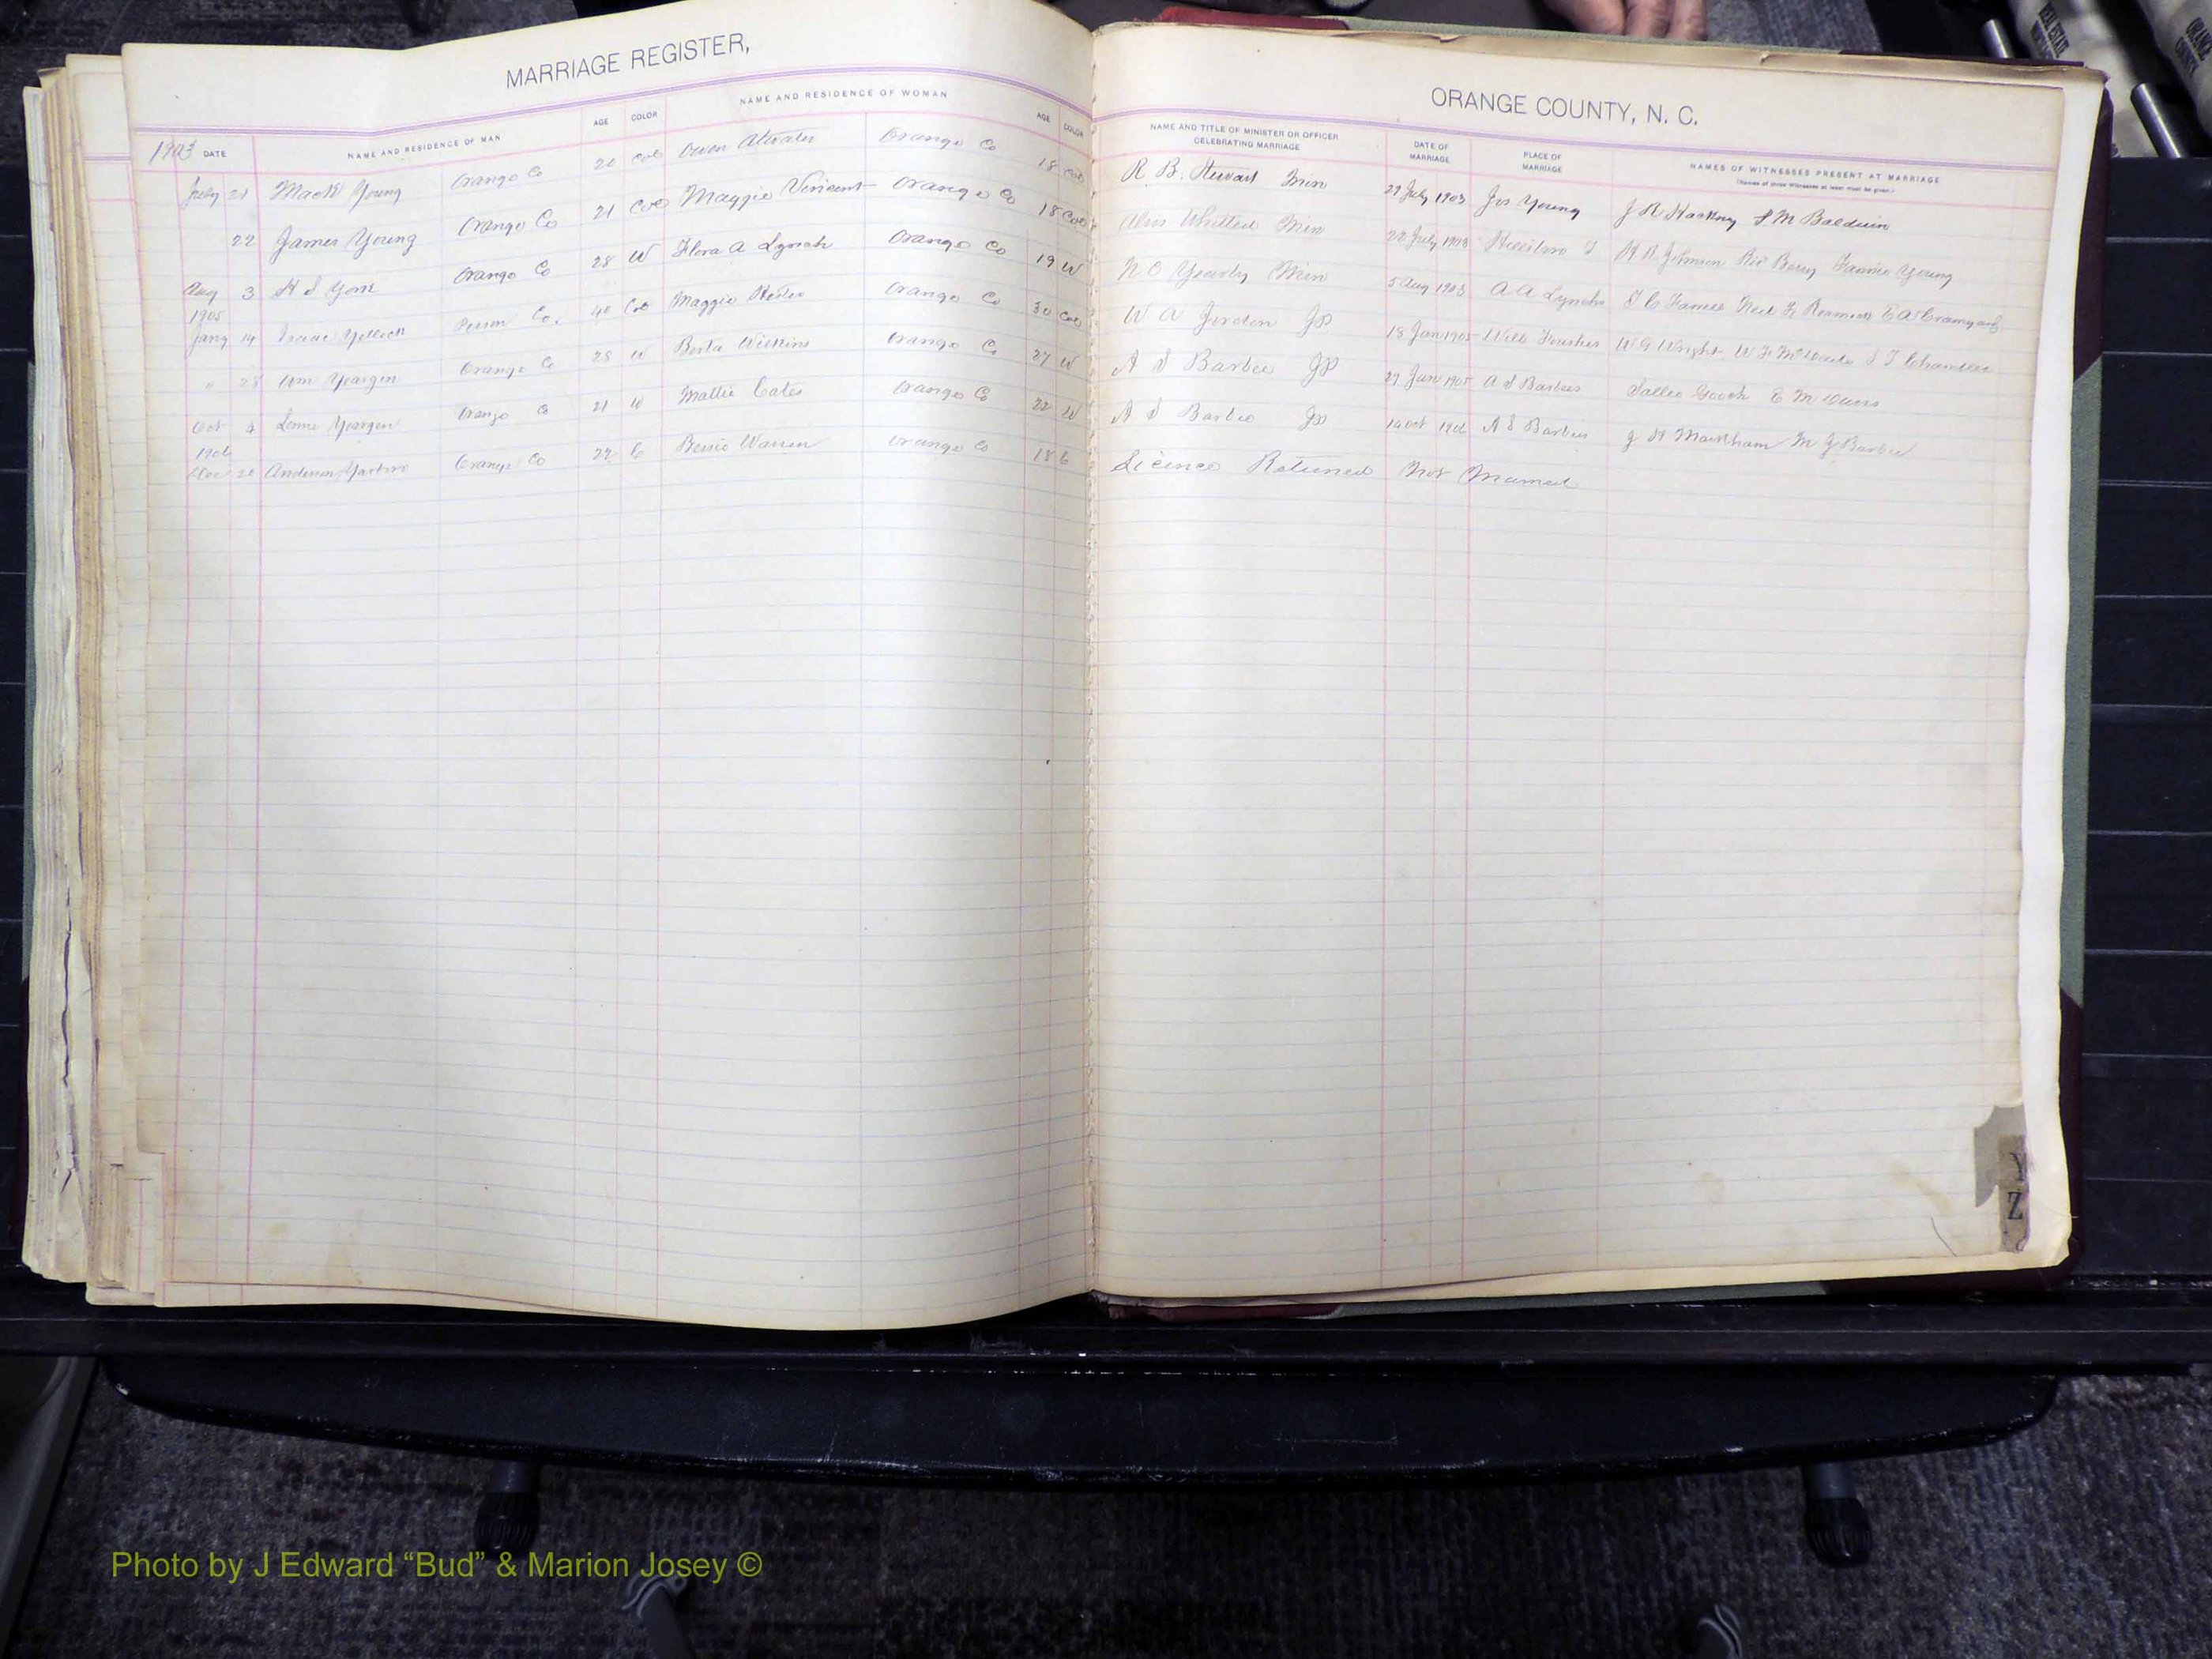 MARRIAGE REGISTER,
1903 DATE NAME AND RESIDENCE OF MAN AGE COLOR NAME AND RESIDENCE OF WOMAN AGE COLOR
July 21 Mack Young Orange Co 20 Col Owen Atwater Orange Co 18 Col
22 James Young Orange Co 21 Col Maggie Vincent Orange Co 18 Col
Aug 3 H S York Orange Co 28 W Flora A Lynch Orange Co 19 W
1905
Jany 14 Isaac Person Co. 40 Col Maggie Hester Orange Co 30 Col
" 28 Wm Yeargen Orange Co 28 W Berta Wilkins Orange Co 27 W
Oct 4 Yeargen Orange Co 21 W Mattie Cates Orange Co 22 W
1906
Dec 20 Anderson Orange Co 22 C Bessie Warren Orange Co 18 C
ORANGE COUNTY, N. C.
NAME AND TITLE OF MINISTER OR OFFICER CELEBRATING MARRIAGE DATE OF MARRIAGE PLACE OF MARRIAGE NAMES OF WITNESSES PRESENT AT MARRIAGE
(Names of three Witnesses at least must be given.)
R B. Stewart Min July 1903 Jos Young J R Hackney S M Baldwin
Whitted Min 22 July 1903 H R Johnson Berry Fannie Young
N O Yearly Min 5 Aug 1903 A A Lynch
W A Jordon JP 18 Jan 1905 W G Wright W F S T Chandler
A S Barbee JP 29 Jan 1905 A S Barbees Sallie Gooch E M
A S Barbee JP Oct A S Barbees J H Markham M J Barbee
Licence Returned Not Married
Y
Z
REAL ESTATE
ORANGE COUNTY
Photo by J Edward “Bud” & Marion Josey ©